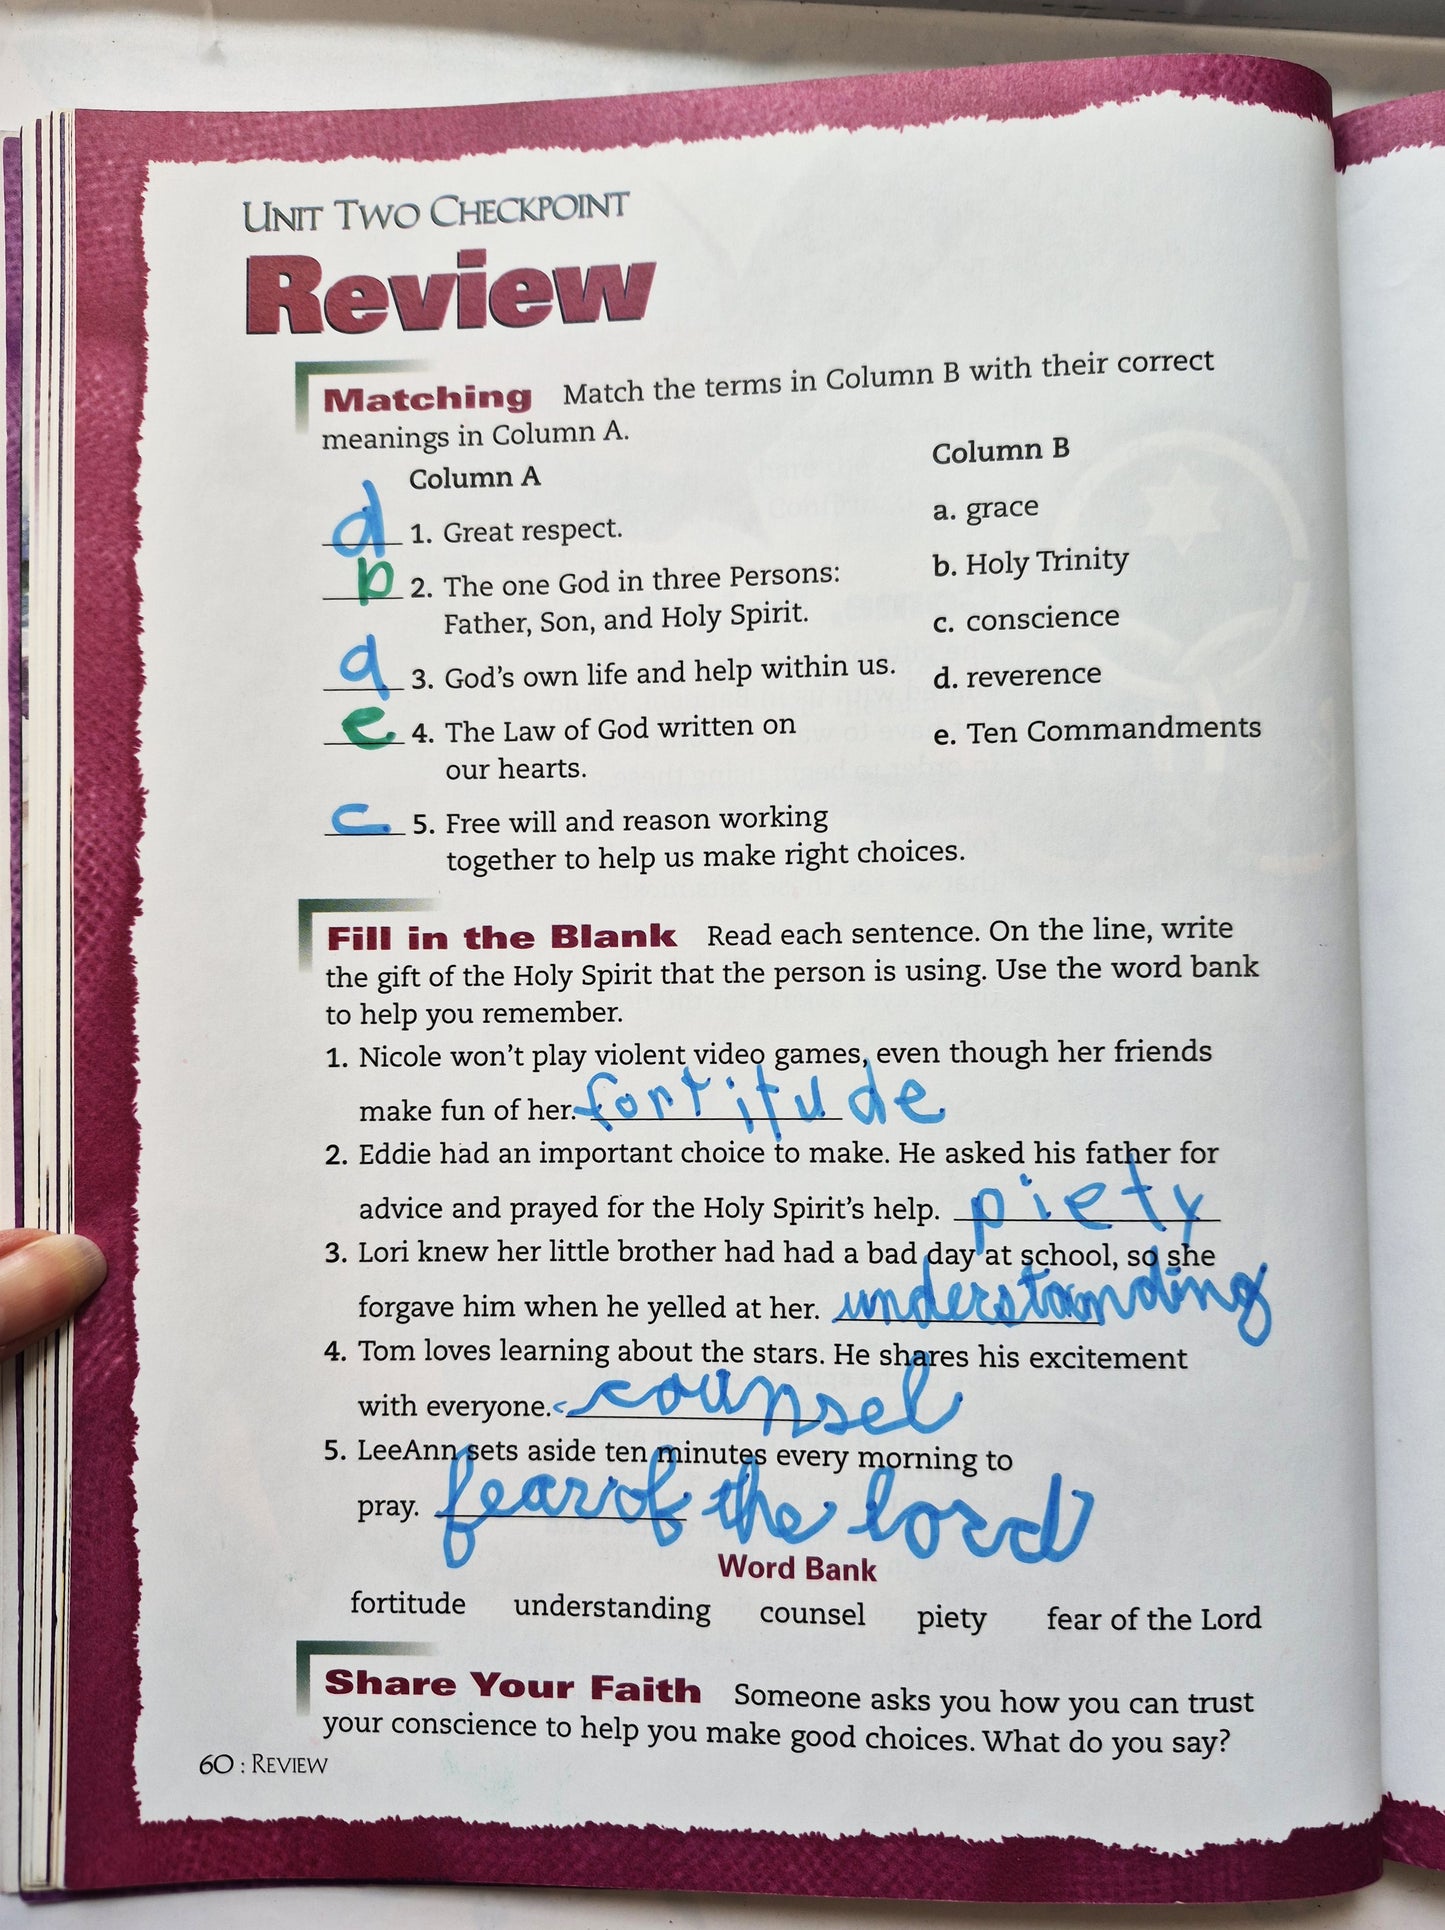 UNIT TWO CHECKPOINT
Review
Matching Match the terms in Column B with their correct
meanings in Column A.
Column A
Column B
d 1. Great respect.
a. grace
b 2. The one God in three Persons:
Father, Son, and Holy Spirit.
b. Holy Trinity
c. conscience
a 3. God's own life and help within us.
d. reverence
e 4. The Law of God written on
our hearts.
e. Ten Commandments
c 5. Free will and reason working
together to help us make right choices.
Fill in the Blank Read each sentence. On the line, write
the gift of the Holy Spirit that the person is using. Use the word bank
to help you remember.
1. Nicole won't play violent video games, even though her friends
make fun of her. fortitude
2. Eddie had an important choice to make. He asked his father for
advice and prayed for the Holy Spirit's help. piety
3. Lori knew her little brother had had a bad day at school, so she
forgave him when he yelled at her. understanding
4. Tom loves learning about the stars. He shares his excitement
with everyone. counsel
5. LeeAnn sets aside ten minutes every morning to
pray. fear of the lord
Word Bank
fortitude understanding counsel piety fear of the Lord
Share Your Faith Someone asks you how you can trust
your conscience to help you make good choices. What do you say?
60 : REVIEW